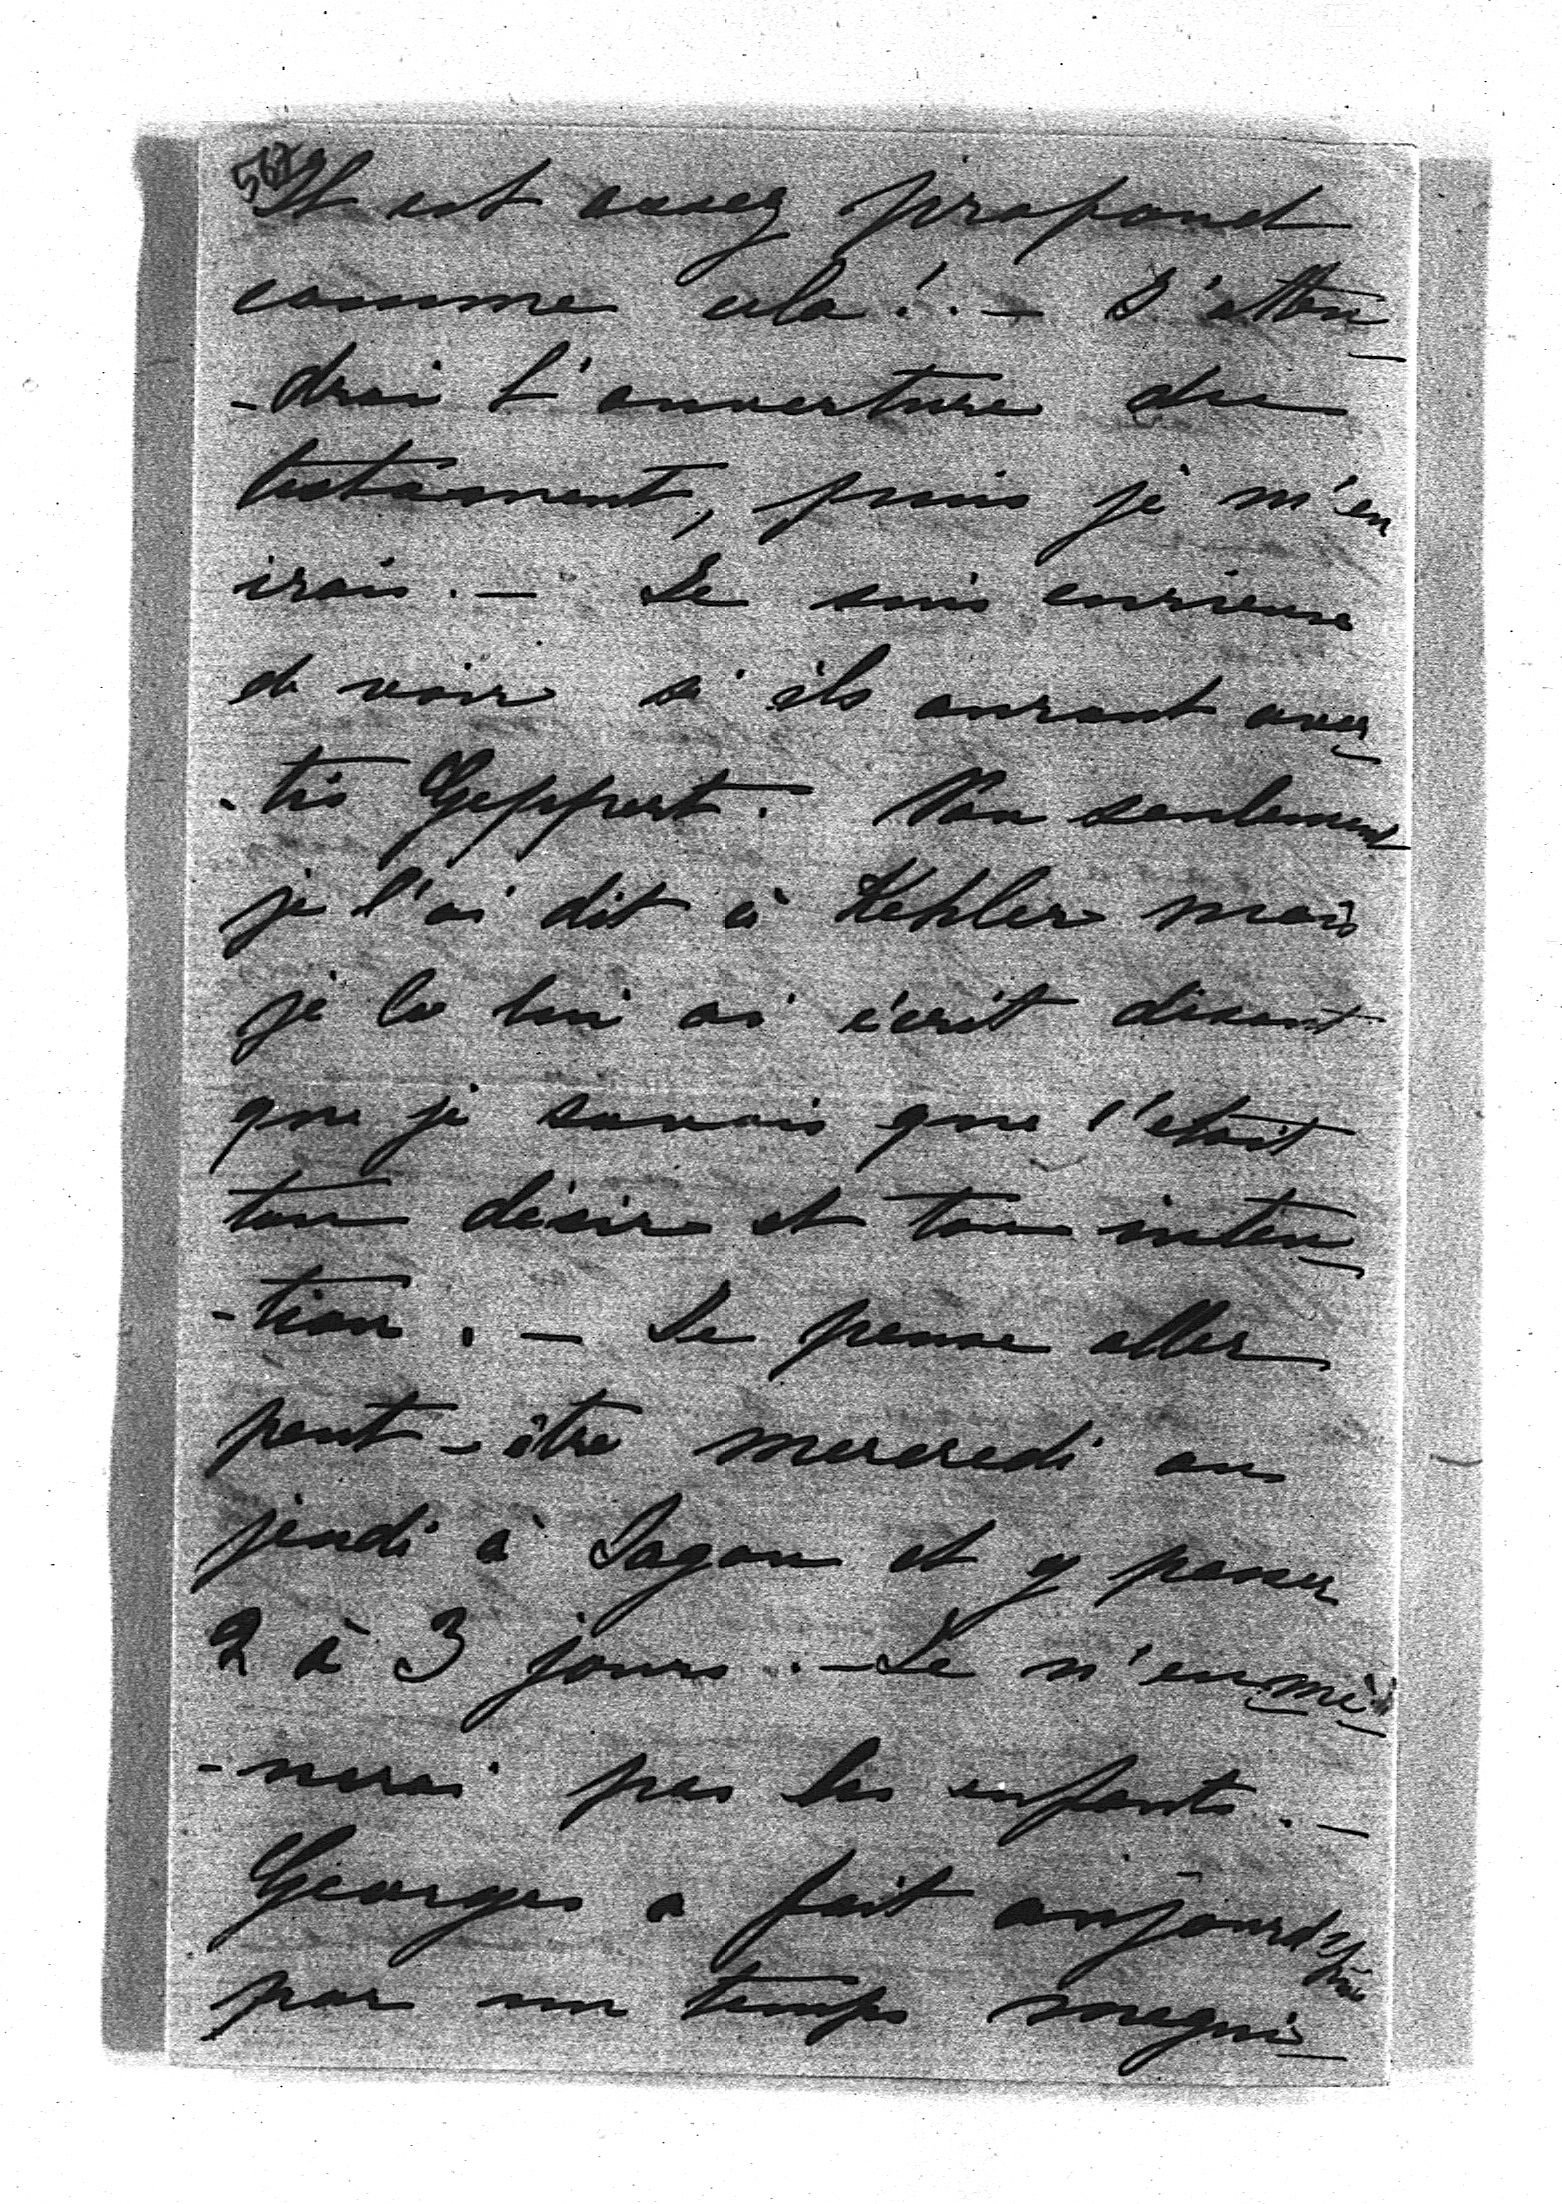 Il est assez profond
comme cela ! . — J'atten
-drai l'ouverture du
testament, puis je m'en
irais . — Je suis curieuse
de voir si ils auront aver
-tis Geppert . Non seulement
je l'ai dit à Kehler mais
je le lui ai écrit disant
que je savais que c'était
ton désir et ton inten
-tion . — Je pense aller
peut-être mercredi ou
jeudi à Sagan et y passer
2 à 3 jours . — Je n'enmè
-nerai pas les enfants . —
Georges a fait aujourd'hui
par un temps magni